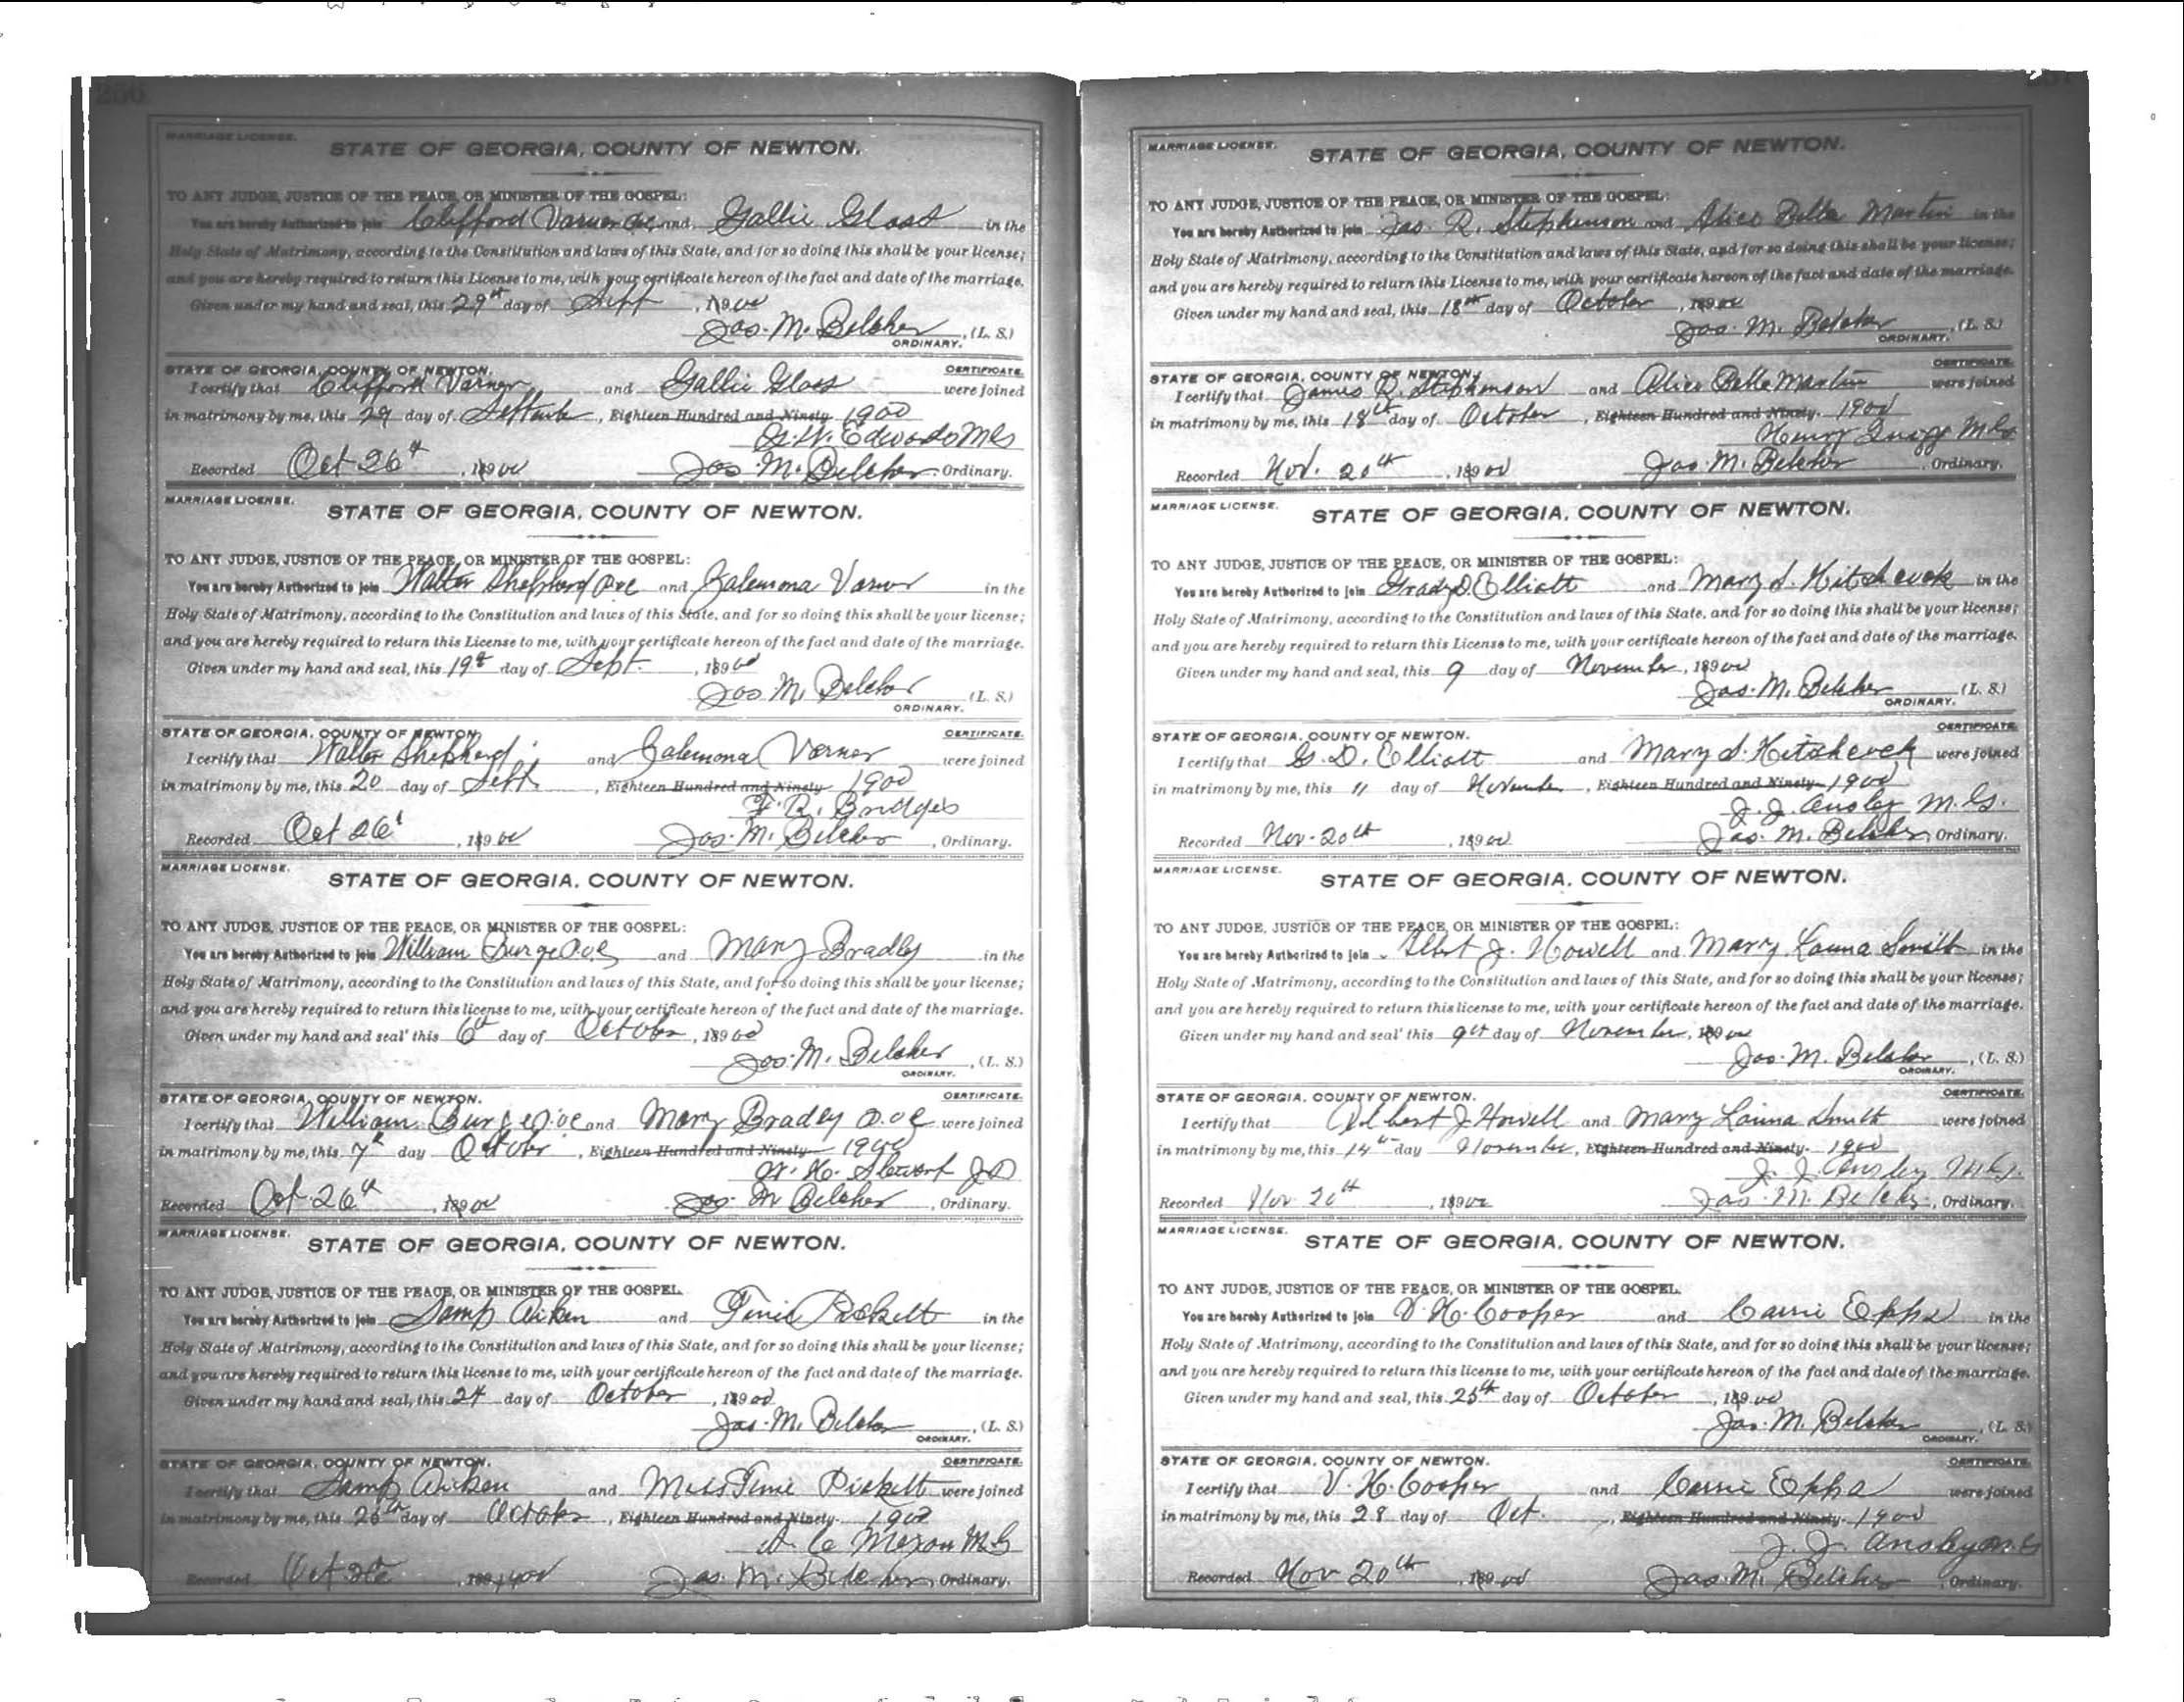 266
MARRIAGE LICENSE.
STATE OF GEORGIA, COUNTY OF NEWTON.
TO ANY JUDGE, JUSTICE OF THE PEACE, OR MINISTER OF THE GOSPEL:
You are hereby Authorized to join Clifford Varner and Gallie Glass in the
Holy State of Matrimony, according to the Constitution and laws of this State, and for so doing this shall be your license;
and you are hereby required to return this License to me, with your certificate hereon of the fact and date of the marriage.
Given under my hand and seal, this 29th day of Sept, 1900
Jas. M. Belcher, (L. S.)
ORDINARY.
STATE OF GEORGIA, COUNTY OF NEWTON. CERTIFICATE.
I certify that Clifford Varner and Gallie Glass were joined
in matrimony by me, this 29 day of, Eighteen Hundred and Ninety 1900
G. W. Edwards MG
Recorded Oct 26th, 1900 Jas. M. Belcher Ordinary.
MARRIAGE LICENSE.
STATE OF GEORGIA, COUNTY OF NEWTON.
TO ANY JUDGE, JUSTICE OF THE PEACE, OR MINISTER OF THE GOSPEL:
You are hereby Authorized to join Walter Shepherd and Varner in the
Holy State of Matrimony, according to the Constitution and laws of this State, and for so doing this shall be your license;
and you are hereby required to return this License to me, with your certificate hereon of the fact and date of the marriage.
Given under my hand and seal, this 19th day of Sept., 1900
Jas. M. Belcher (L. S.)
ORDINARY.
STATE OF GEORGIA, COUNTY OF NEWTON. CERTIFICATE.
I certify that Walter Shepherd and Varner were joined
in matrimony by me, this 20 day of Sept, Eighteen Hundred and Ninety 1900
F. R. Bridges
Recorded Oct 26th, 1900 Jas. M. Belcher, Ordinary.
MARRIAGE LICENSE.
STATE OF GEORGIA, COUNTY OF NEWTON.
TO ANY JUDGE, JUSTICE OF THE PEACE, OR MINISTER OF THE GOSPEL:
You are hereby Authorized to join William Burge and Mary Bradley in the
Holy State of Matrimony, according to the Constitution and laws of this State, and for so doing this shall be your license;
and you are hereby required to return this license to me, with your certificate hereon of the fact and date of the marriage.
Given under my hand and seal' this 6th day of October, 1900
Jas. M. Belcher, (L. S.)
ORDINARY.
STATE OF GEORGIA, COUNTY OF NEWTON. CERTIFICATE.
I certify that William Burge and Mary Bradley were joined
in matrimony by me, this 7th day October, Eighteen Hundred and Ninety 1900
W. H. Stewart
Recorded Oct 26th, 1900 Jas. M Belcher, Ordinary.
MARRIAGE LICENSE.
STATE OF GEORGIA, COUNTY OF NEWTON.
TO ANY JUDGE, JUSTICE OF THE PEACE, OR MINISTER OF THE GOSPEL.
You are hereby Authorized to join Samp Aiken and Tinie Pickett in the
Holy State of Matrimony, according to the Constitution and laws of this State, and for so doing this shall be your license;
and you are hereby required to return this license to me, with your certificate hereon of the fact and date of the marriage.
Given under my hand and seal, this 24 day of October, 1900
Jas. M. Belcher, (L. S.)
ORDINARY.
STATE OF GEORGIA, COUNTY OF NEWTON. CERTIFICATE.
I certify that Samp Aiken and Miss Tinie Pickett were joined
in matrimony by me, this day of October, Eighteen Hundred and Ninety. 1900
Recorded Oct, 1900 Jas. M. Belcher, Ordinary.
MARRIAGE LICENSE.
STATE OF GEORGIA, COUNTY OF NEWTON.
TO ANY JUDGE, JUSTICE OF THE PEACE, OR MINISTER OF THE GOSPEL:
You are hereby Authorized to join Jas. R. Stephenson and Alice Bella Martin in the
Holy State of Matrimony, according to the Constitution and laws of this State, and for so doing this shall be your license;
and you are hereby required to return this License to me, with your certificate hereon of the fact and date of the marriage.
Given under my hand and seal, this 18th day of October, 1900
Jas. M. Belcher, (L. S.)
ORDINARY.
STATE OF GEORGIA, COUNTY OF NEWTON. CERTIFICATE.
I certify that James R. Stephenson and Alice Belle Martin were joined
in matrimony by me, this 18th day of October, Eighteen Hundred and Ninety. 1900
Henry
Recorded Nov. 20th, 1900 Jas. M. Belcher, Ordinary.
MARRIAGE LICENSE.
STATE OF GEORGIA, COUNTY OF NEWTON.
TO ANY JUDGE, JUSTICE OF THE PEACE, OR MINISTER OF THE GOSPEL:
You are hereby Authorized to join Grady D. Elliott and Mary S. Hitchcock in the
Holy State of Matrimony, according to the Constitution and laws of this State, and for so doing this shall be your license;
and you are hereby required to return this License to me, with your certificate hereon of the fact and date of the marriage.
Given under my hand and seal, this 9 day of November, 1900
Jas. M. Belcher (L. S.)
ORDINARY.
STATE OF GEORGIA, COUNTY OF NEWTON. CERTIFICATE.
I certify that G. D. Elliott and Mary S. Hitchcock were joined
in matrimony by me, this 11 day of November, Eighteen Hundred and Ninety 1900
J. J. Ansley M.G.
Recorded Nov. 20th, 1900 Jas. M. Belcher, Ordinary.
MARRIAGE LICENSE.
STATE OF GEORGIA, COUNTY OF NEWTON.
TO ANY JUDGE, JUSTICE OF THE PEACE, OR MINISTER OF THE GOSPEL:
You are hereby Authorized to join Elbert J. Howell and Mary Smith in the
Holy State of Matrimony, according to the Constitution and laws of this State, and for so doing this shall be your license;
and you are hereby required to return this license to me, with your certificate hereon of the fact and date of the marriage.
Given under my hand and seal' this 9th day of November, 1900
Jas. M. Belcher, (L. S.)
ORDINARY.
STATE OF GEORGIA, COUNTY OF NEWTON. CERTIFICATE.
I certify that J. Howell and Mary Smith were joined
in matrimony by me, this 14th day November, Eighteen Hundred and Ninety. 1900
J. J. Ansley M.G.
Recorded Nov 20th, 1900 Jas. M. Belcher, Ordinary.
MARRIAGE LICENSE.
STATE OF GEORGIA, COUNTY OF NEWTON.
TO ANY JUDGE, JUSTICE OF THE PEACE, OR MINISTER OF THE GOSPEL.
You are hereby Authorized to join V. H. Cooper and Carrie Epps in the
Holy State of Matrimony, according to the Constitution and laws of this State, and for so doing this shall be your license;
and you are hereby required to return this license to me, with your certificate hereon of the fact and date of the marriage.
Given under my hand and seal, this 25th day of October, 1900
Jas. M. Belcher, (L. S.)
ORDINARY.
STATE OF GEORGIA, COUNTY OF NEWTON. CERTIFICATE.
I certify that V. H. Cooper and Carrie Epps were joined
in matrimony by me, this 28 day of Oct., Eighteen Hundred and Ninety. 1900
J. J. Ansley M.G
Recorded Nov 20th, 1900 Jas M. Belcher, Ordinary.